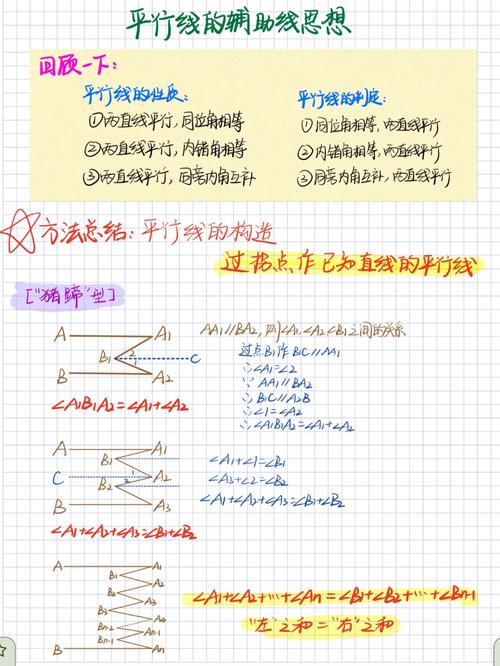 平行线的辅助线思想
回顾一下:
平行线的性质:
①两直线平行,同位角相等
②两直线平行,内错角相等
③两直线平行,同旁内角互补
平行线的判定:
①同位角相等,两直线平行
②内错角相等,两直线平行
③同旁内角互补,两直线平行
方法总结:平行线的构造
过拐点作已知直线的平行线
["猪蹄"型]
A A1
B1 2 1 C
B A2
∠A1B1A2=∠A1+∠A2
AA1∥BA2,则∠A1,∠A2,∠B1之间的关系
过点B1作B1C∥AA1
∴∠A1=∠2
∵AA1∥BA2
∴B1C∥A2B
∴∠1=∠A2
∴∠A1B1A2=∠A1+∠A2
A A1
B1
C 1 2 A2
B2
B A3
∠A1+∠A2+∠A3=∠B1+∠B2
∠A1+∠1=∠B1
∠A3+∠2=∠B2
∠A1+∠A2+∠A3=∠B1+∠B2
A A1
B1 A2
B2 A3
B3 A4
Bn-2 An-1
Bn-1
B An
∠A1+∠A2+…+∠An=∠B1+∠B2+…+∠Bn-1
"左"之和="右"之和